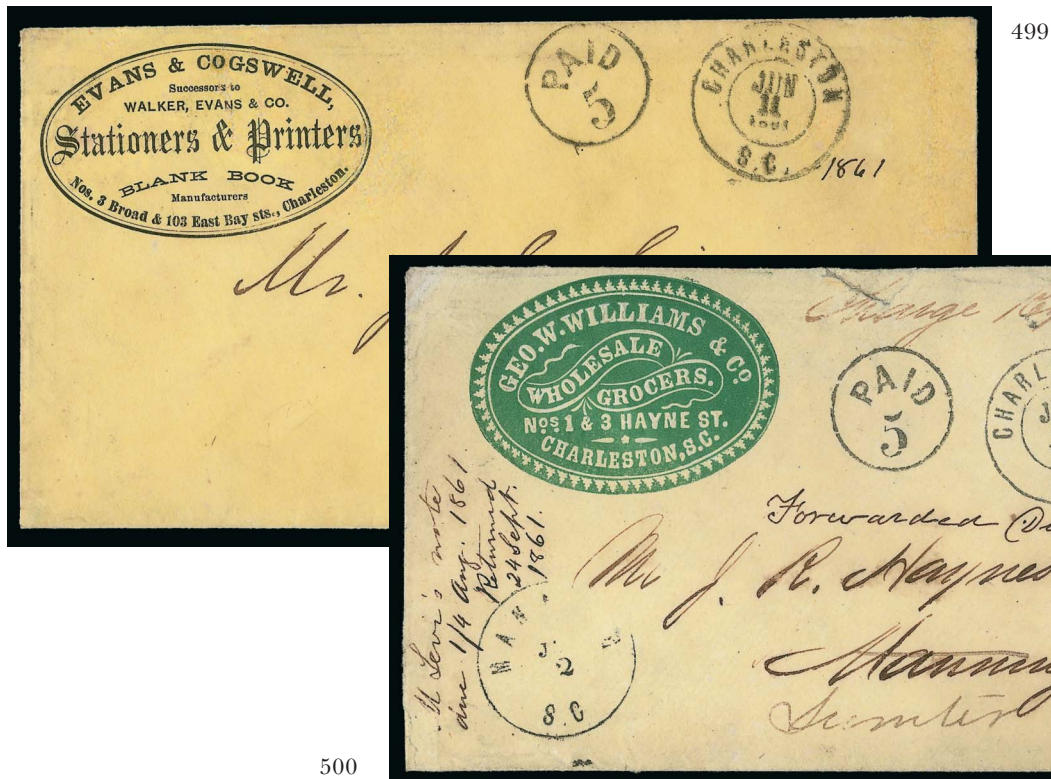 499
EVANS & COGSWELL,
Successors to
WALKER, EVANS & CO.
Stationers & Printers
BLANK BOOK
Manufacturers
Nos. 3 Broad & 103 East Bay sts., Charleston.
PAID
5
CHARLESTON
JUN
11
1861
S.C.
1861
Mr.
GEO. W. WILLIAMS & CO.
WHOLESALE
GROCERS.
Nos. 1 & 3 HAYNE ST.
CHARLESTON, S.C.
Change
PAID
5
CHARL
Forwarded
Mr J. R. Haynes
Manning
Sumter
Levi's note
due 1/4 Aug. 1861
Returned
24 Sept.
1861.
MAN
2
S.C
500